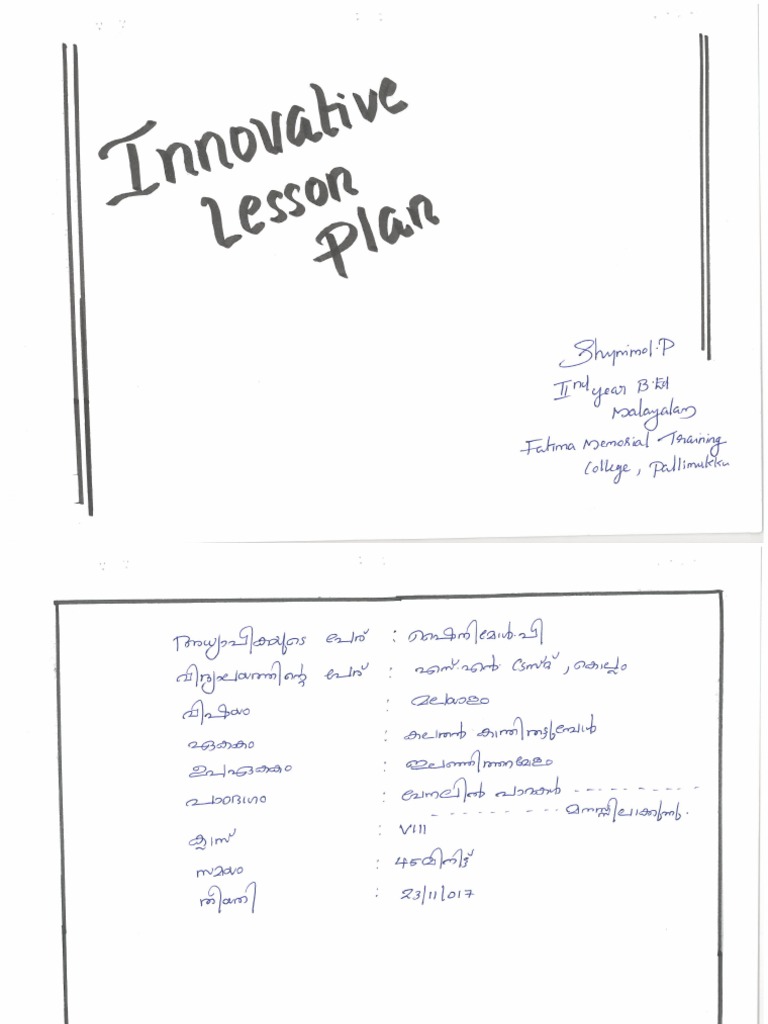 Innovative
Lesson
Plan
Shynimol.P
IInd year B.Ed
Malayalam
Fatima Memorial Training
College, Pallimukku
അധ്യാപികയുടെ പേര് : ഷൈനിമോൾ.പി
വിദ്യാലയത്തിന്റെ പേര് : എസ്.എൻ ട്രസ്റ്റ്, കൊല്ലം
വിഷയം : മലയാളം
ഏകകം : കലകൾ കാവ്യം
ഉപഏകകം : ഇലഞ്ഞിത്തറമേളം
പാഠഭാഗം : വേനലിൽ പാറകൾ ----------
---------- മനസ്സിലാക്കുന്നു.
ക്ലാസ് : VIII
സമയം : 45 മിനിട്ട്
തീയതി : 23/11/017